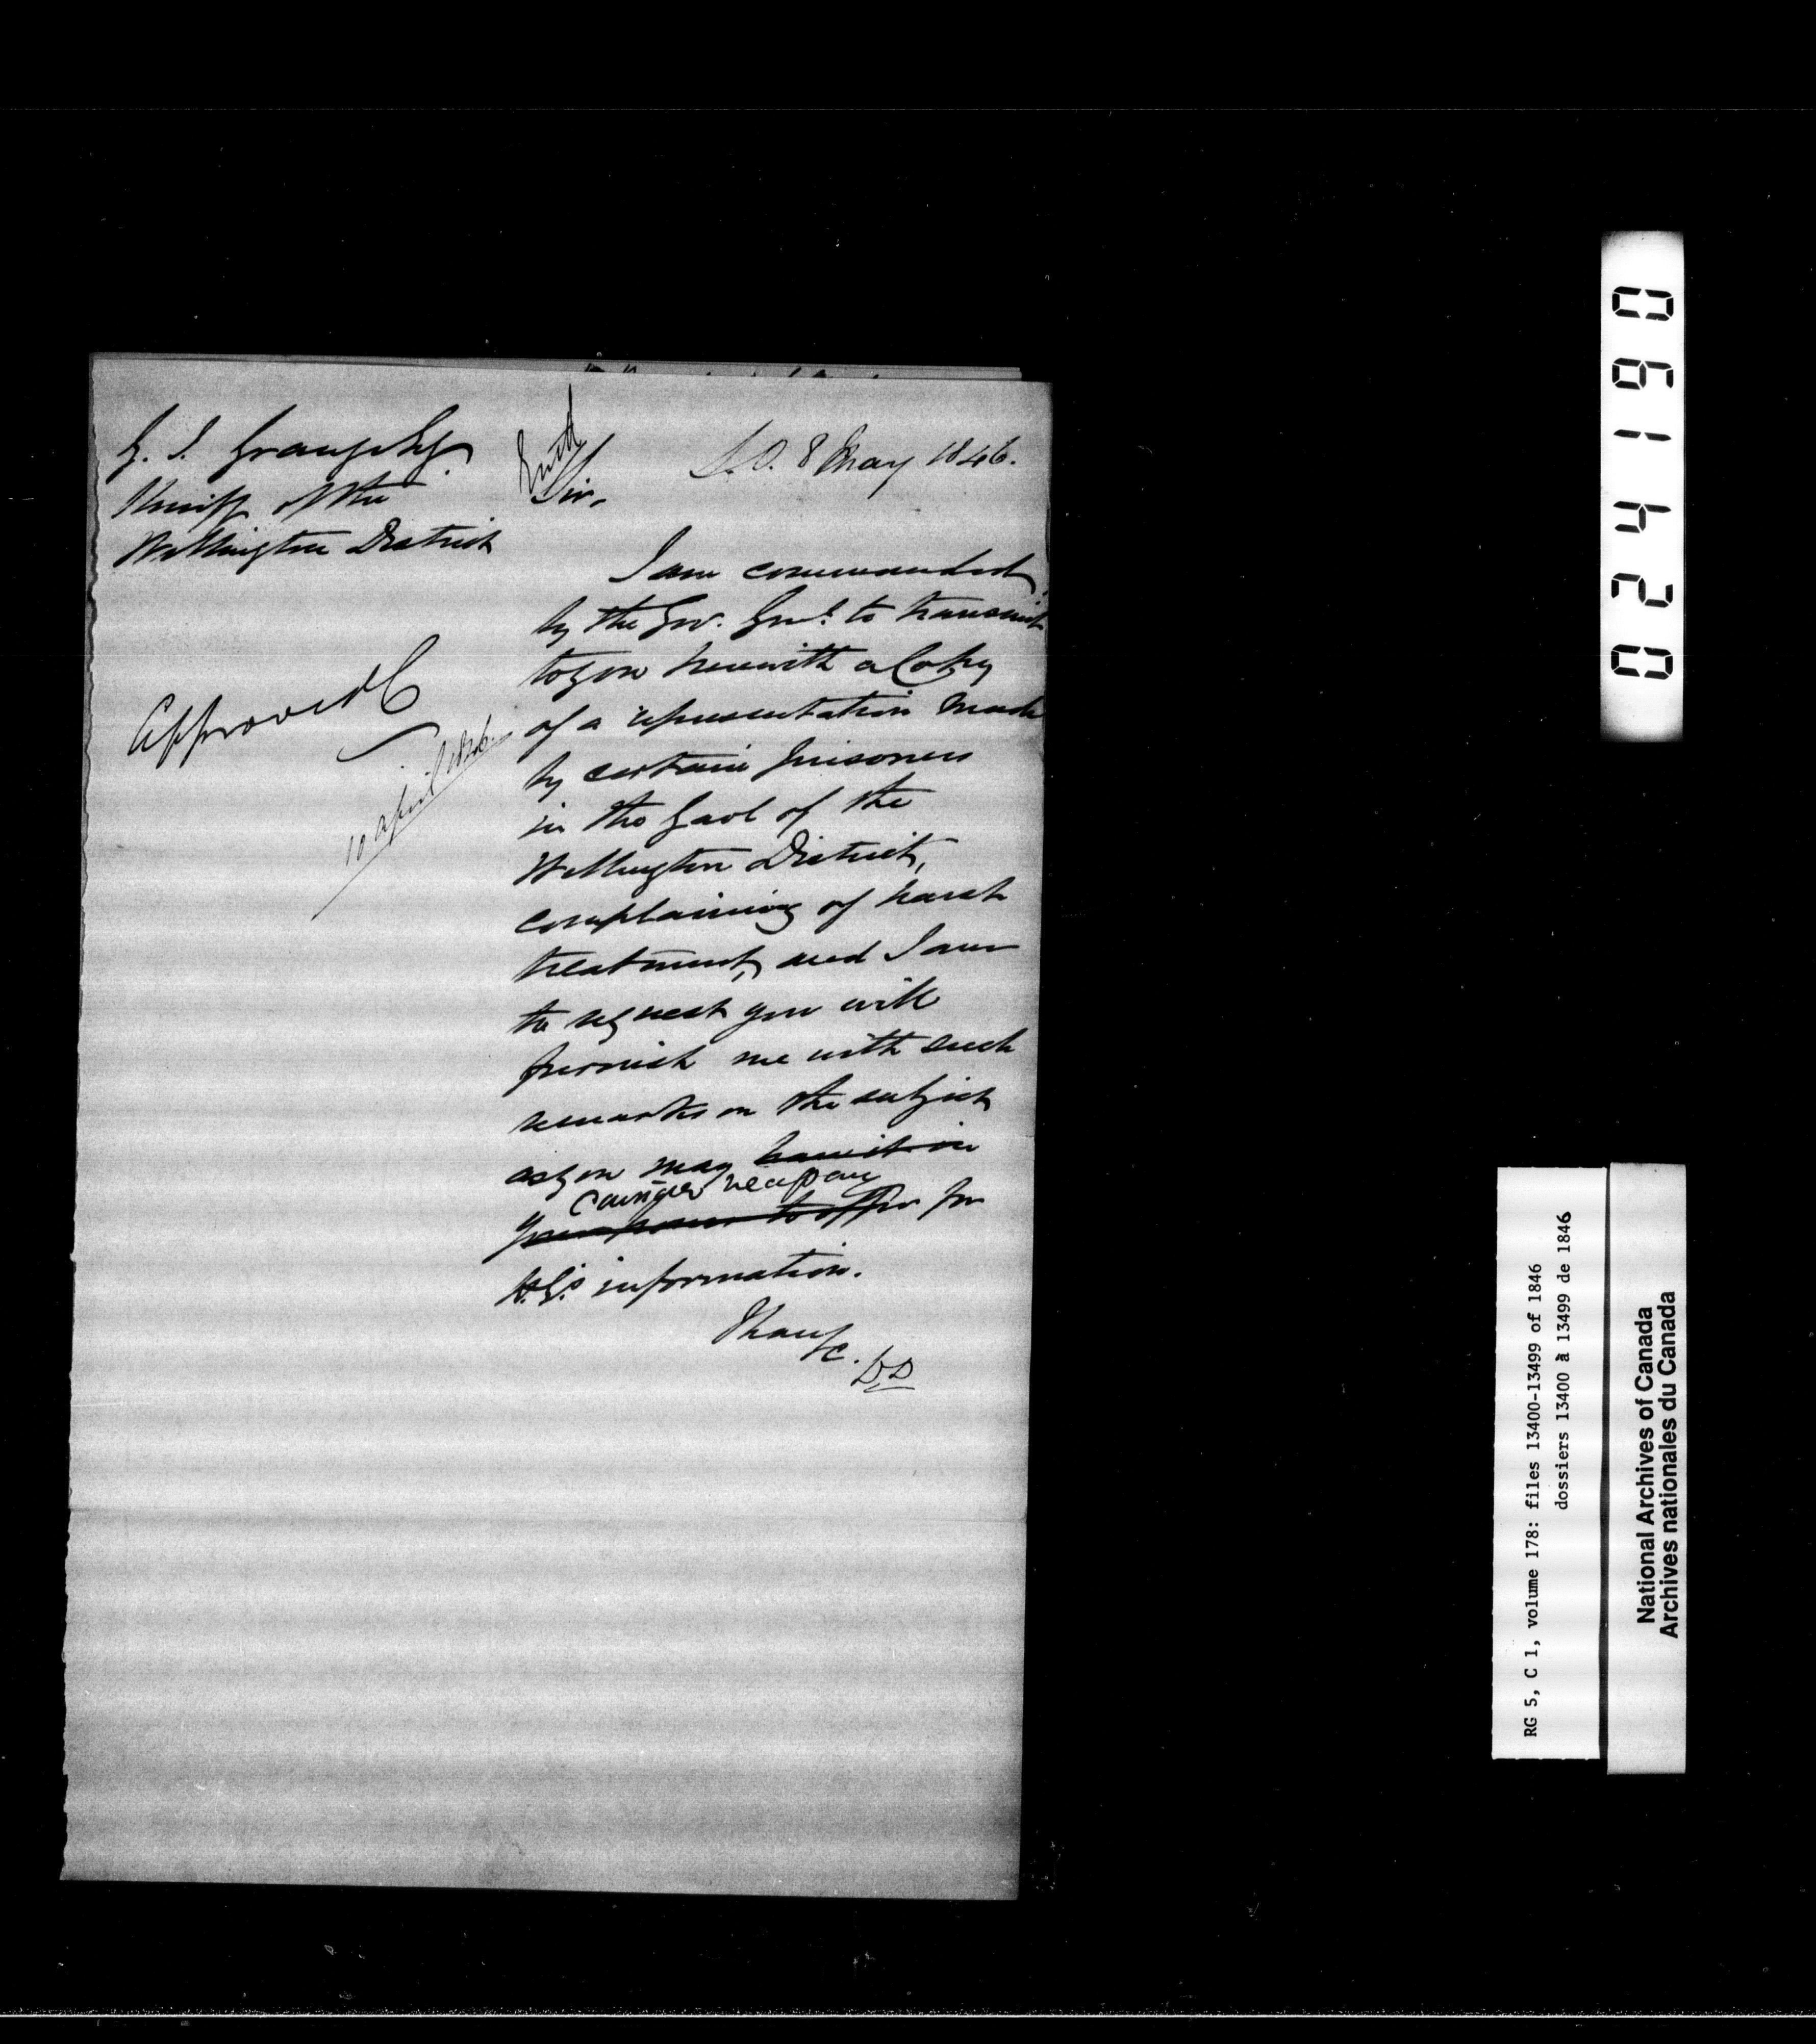 G. J. Grange Esq.
Sheriff of the
Wellington District
S.O. 8 May 1846.
Sir,
Approved C
10 april 1846
I am commanded
by the Gov. Genl. to transmit
to you herewith a Copy
of a representation made
by certain prisoners
in the Gaol of the
Wellington District,
complaining of harsh
treatment, and I am
to request you will
furnish me with such
remarks on the subject
as you may have it in
your power to offer for
H.E's information.
I have
&c. D.D
024190
RG 5, C 1, volume 178: files 13400-13499 of 1846
dossiers 13400 à 13499 de 1846
National Archives of Canada
Archives nationales du Canada